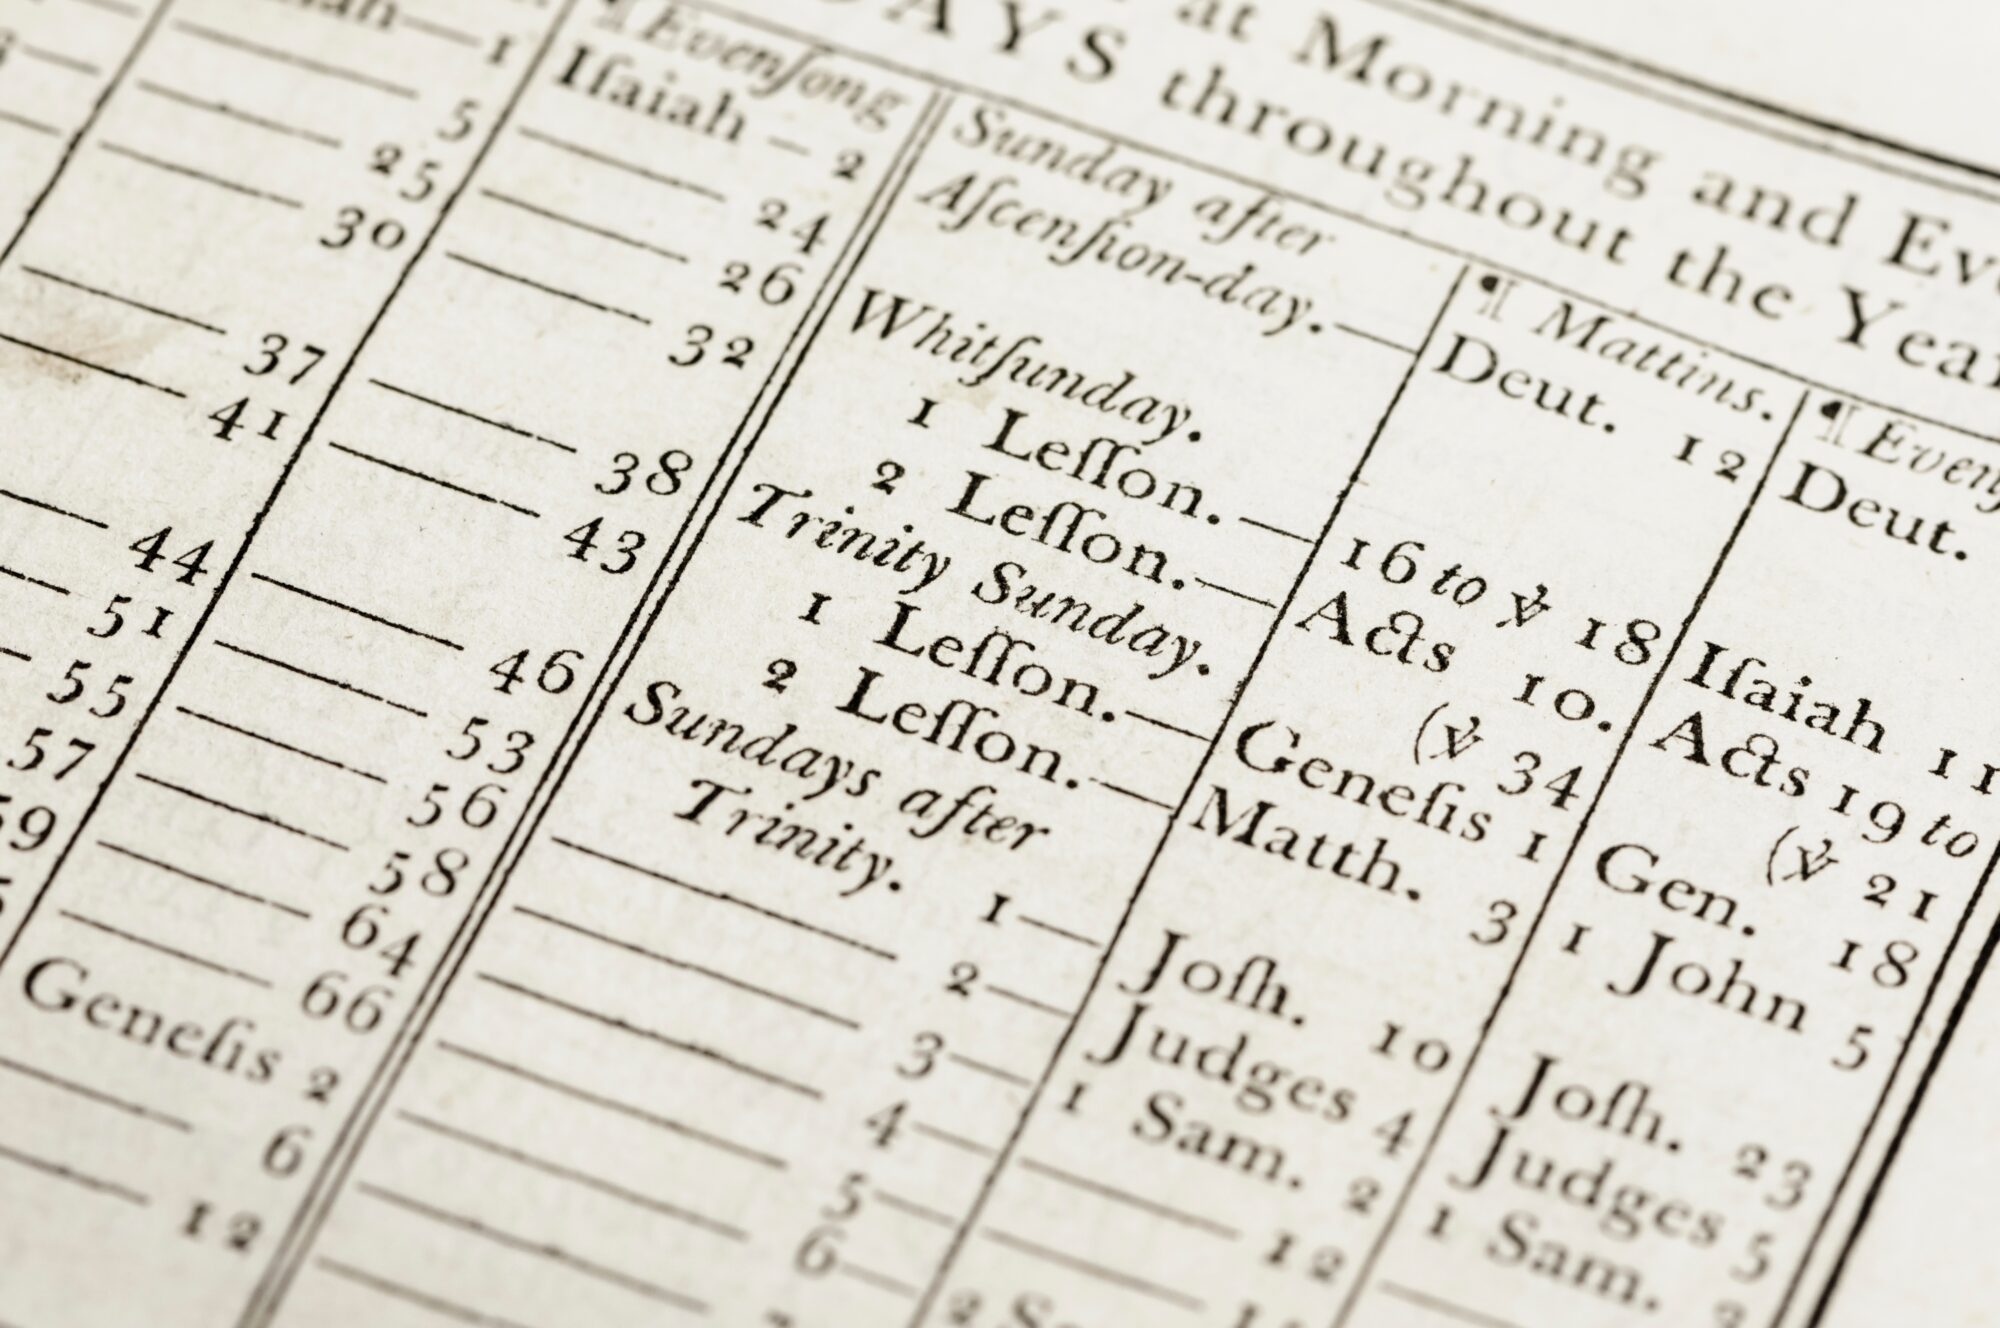 at Morning and
DAYS throughout the Year
¶ Evenſong
1 Iſaiah — 2
5 — 24
25 — 26
30 — 32
37 — 38
41 — 43
44 — 46
51 — 53
55 — 56
57 — 58
59 — 64
— 66
Geneſis 2
— 6
— 12
¶ Mattins. ¶
Sunday after
Aſcenſion-day. — Deut. 12 Deut.
Whitſunday.
1 Leſſon. — 16 to ℣ 18 Iſaiah 11
2 Leſſon. — Acts 10. Acts 19 to
(℣ 34 (℣ 21
Trinity Sunday.
1 Leſſon. — Geneſis 1 Gen. 18
2 Leſſon. — Matth. 3 1 John 5
Sundays after
Trinity.
1 — Joſh. 10 Joſh. 23
— 2 — Judges 4 Judges 5
— 3 — 1 Sam. 2 1 Sam.
— 4 — 12
— 5 —
— 6 — 2